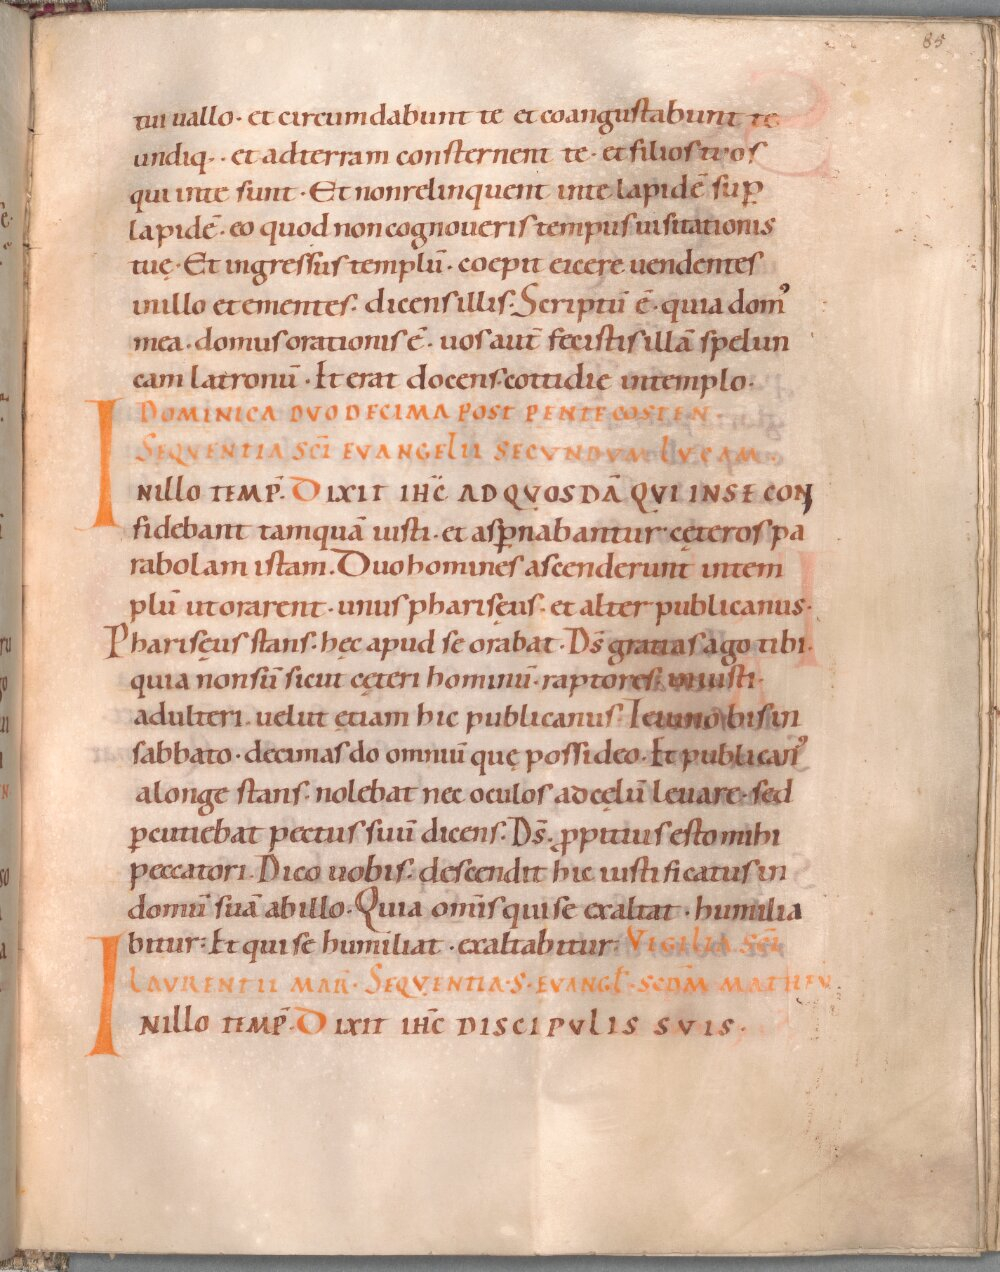 85
tui uallo· et circumdabunt te et coangustabunt te
undiq·· et adterram consternent te· et filios tuos
qui inte sunt· Et nonrelinquent inte lapidē sup̄
lapidē· eo quod non cognoueris tempus uisitationis
tuę· Et ingressus templū· coepit eicere uendentes
inillo et ementes· dicens illis· Scriptū ē· quia domꝰ
mea· domus orationis ē· uos aut̄ fecistis illā spelun
cam latronū· Et erat docens cottidie intemplo·
DOMINICA DVODECIMA POST PENTECOSTEN·
SEQVENTIA SC̄I EVANGELII SECVNDVM LVCAM·
INILLO TEMP̄· DIXIT IHC̄ AD QUOSDĀ QVI INSE CON
fidebant tamquā iusti· et asp̄nabantur cęteros pa
rabolam istam. Duo homines ascenderunt intem
plū ut orarent· unus pharisęus· et alter publicanus·
Pharisęus stans· hęc apud se orabat· D̄s gratias ago tibi·
quia non sū sicut cęteri hominū· raptores· iniusti·
adulteri· uelut etiam hic publicanus· Ieiuno bis in
sabbato· decimas do omniū quę possideo· Et publicanꝰ
alonge stans· nolebat nec oculos adcęlū leuare· sed
p̄cutiebat pectus suū dicens· D̄s· ꝓpitius esto mihi
peccatori· Dico uobis· descendit hic iustificatus in
domū suā abillo· Quia om̄is qui se exaltat· humilia
bitur: Et qui se humiliat· exaltabitur: VIGILIA SC̄I
LAVRENTII MAR̄· SEQVENTIA·S·EVANGL̄·SCD̄M MATHEV̄
INILLO TEMP̄· DIXIT IHC̄ DISCIPVLIS SVIS·